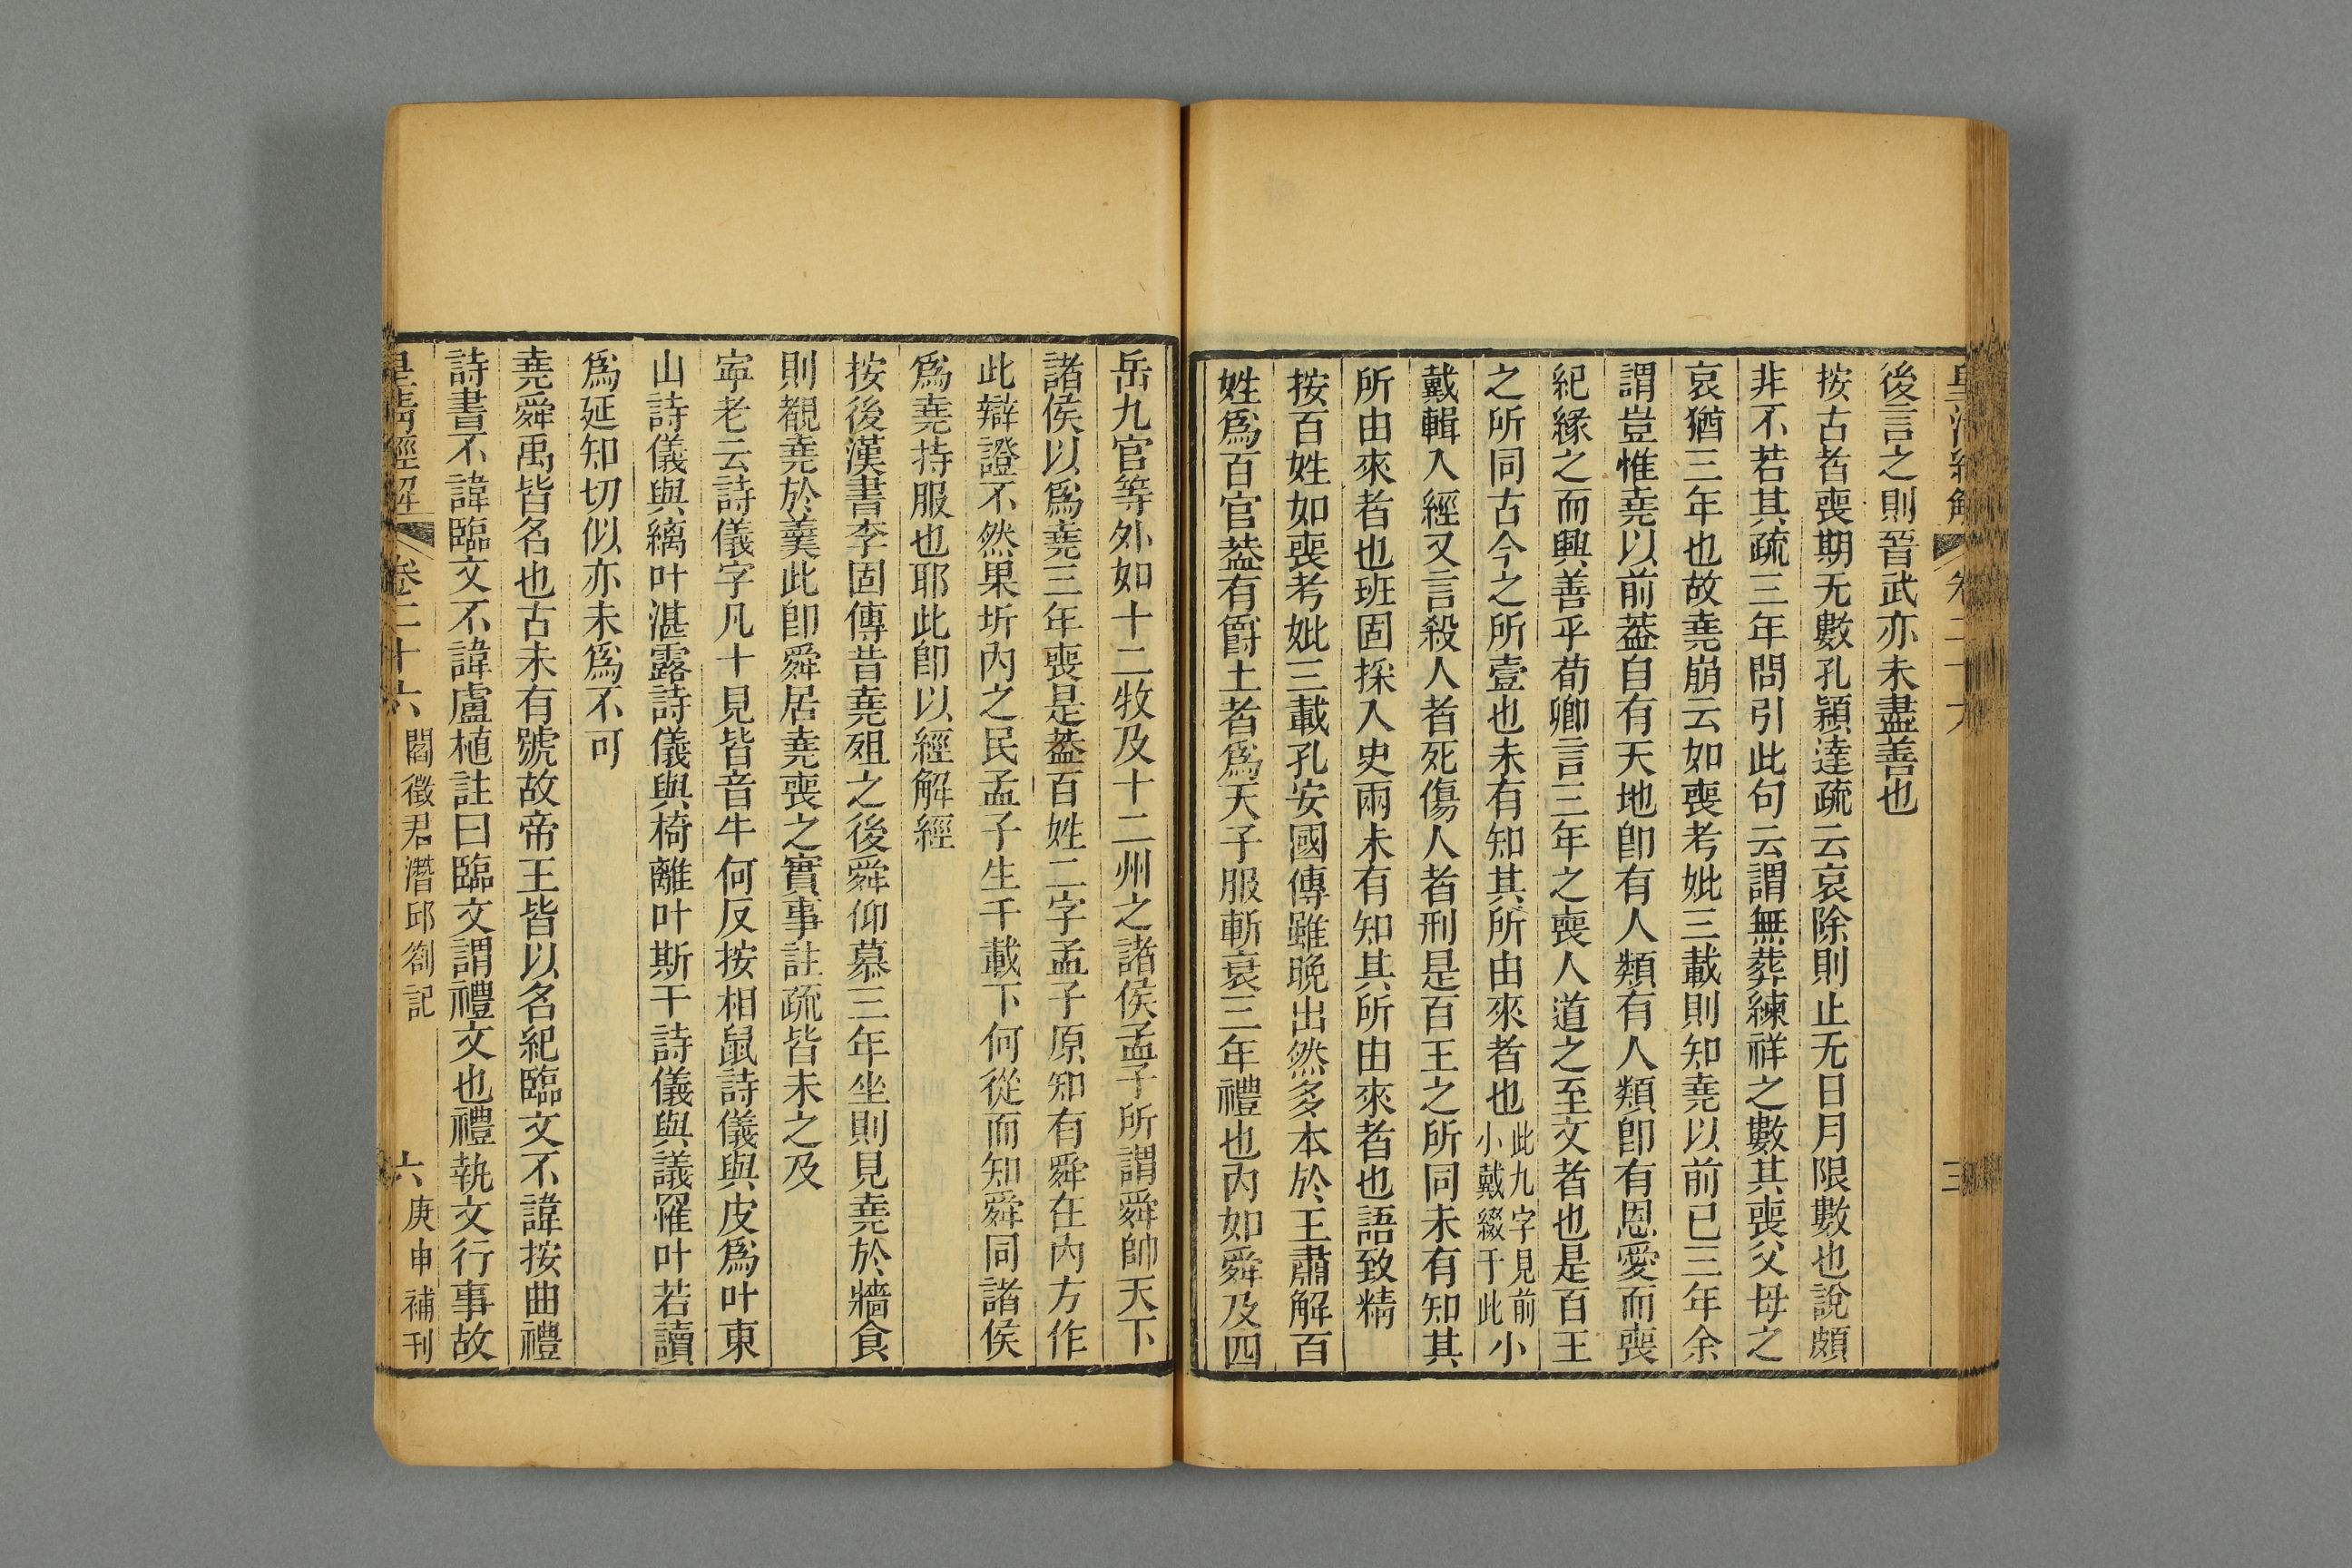 後言之則晉武亦未盡善也
按古者喪期无數孔穎達疏云哀除則止无日月限數也說頗
非不若其疏三年問引此句云謂無葬練祥之數其喪父母之
哀猶三年也故堯崩云如喪考妣三載則知堯以前已三年余
謂豈惟堯以前葢自有天地卽有人類有人類卽有恩愛而喪
紀緣之而興善乎荀卿言三年之喪人道之至文者也是百王
之所同古今之所壹也未有知其所由來者也此九字見前小戴綴于此小
戴輯入經又言殺人者死傷人者刑是百王之所同未有知其
所由來者也班固採入史兩未有知其所由來者也語致精
按百姓如喪考妣三載孔安國傳雖晚出然多本於王肅解百
姓爲百官葢有爵土者爲天子服斬衰三年禮也內如舜及四
三
岳九官等外如十二牧及十二州之諸侯孟子所謂舜帥天下
諸侯以爲堯三年喪是葢百姓二字孟子原知有舜在內方作
此辯證不然果圻內之民孟子生千載下何從而知舜同諸侯
爲堯持服也耶此卽以經解經
按後漢書李固傳昔堯殂之後舜仰慕三年坐則見堯於牆食
則覩堯於羹此卽舜居堯喪之實事註疏皆未之及
寧老云詩儀字凡十見皆音牛何反按相鼠詩儀與皮爲叶東
山詩儀與縭叶湛露詩儀與椅離叶斯干詩儀與議罹叶若讀
爲延知切似亦未爲不可
堯舜禹皆名也古未有號故帝王皆以名紀臨文不諱按曲禮
詩書不諱臨文不諱盧植註曰臨文謂禮文也禮執文行事故
皇清經解 卷二十六 閻徵君潛邱劄記 六 庚申補刊